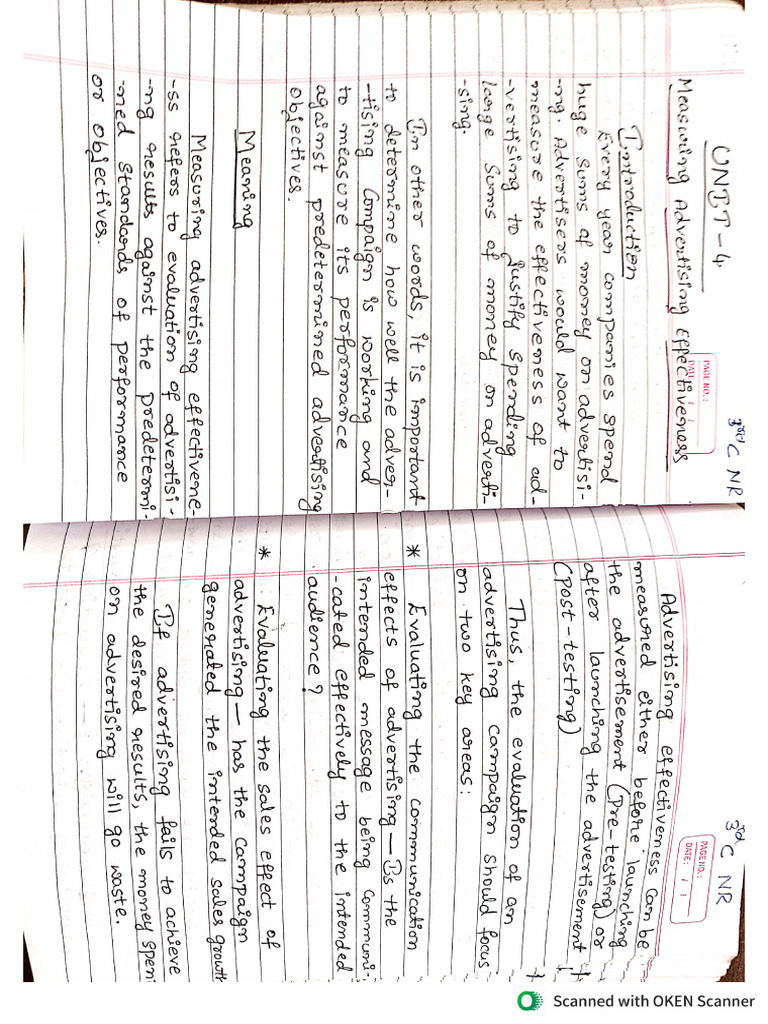 3rd C NR
PAGE NO.:
DATE: / /
UNIT-4
Measuring Advertising Effectiveness
Introduction
Every year companies spend
huge sums of money on advertisi-
-ng. Advertisers would want to
measure the effectiveness of ad-
-vertising to justify spending
large sums of money on adverti-
-sing.
In other words, it is important
to determine how well the adver-
-tising Campaign is working and
to measure its performance
against predetermined advertising
objectives.
Meaning
Measuring advertising effectivene-
-ss refers to evaluation of advertisi-
-ng results against the predetermi-
-med standards of performance
or objectives.
3rd C NR
PAGE NO.:
DATE: / /
Advertising effectiveness can be
measured either before launching
the advertisement (Pre-testing) or
after launching the advertisement
(post-testing)
Thus, the evaluation of an
advertising campaign should focus
on two key areas:
* Evaluating the communication
effects of advertising — Is the
intended message being communi-
-cated effectively to the intended
audience?
* Evaluating the sales effect of
advertising — has the campaign
generated the intended sales growth
If advertising fails to achieve
the desired results, the money spen
on advertising will go waste.
Scanned with OKEN Scanner